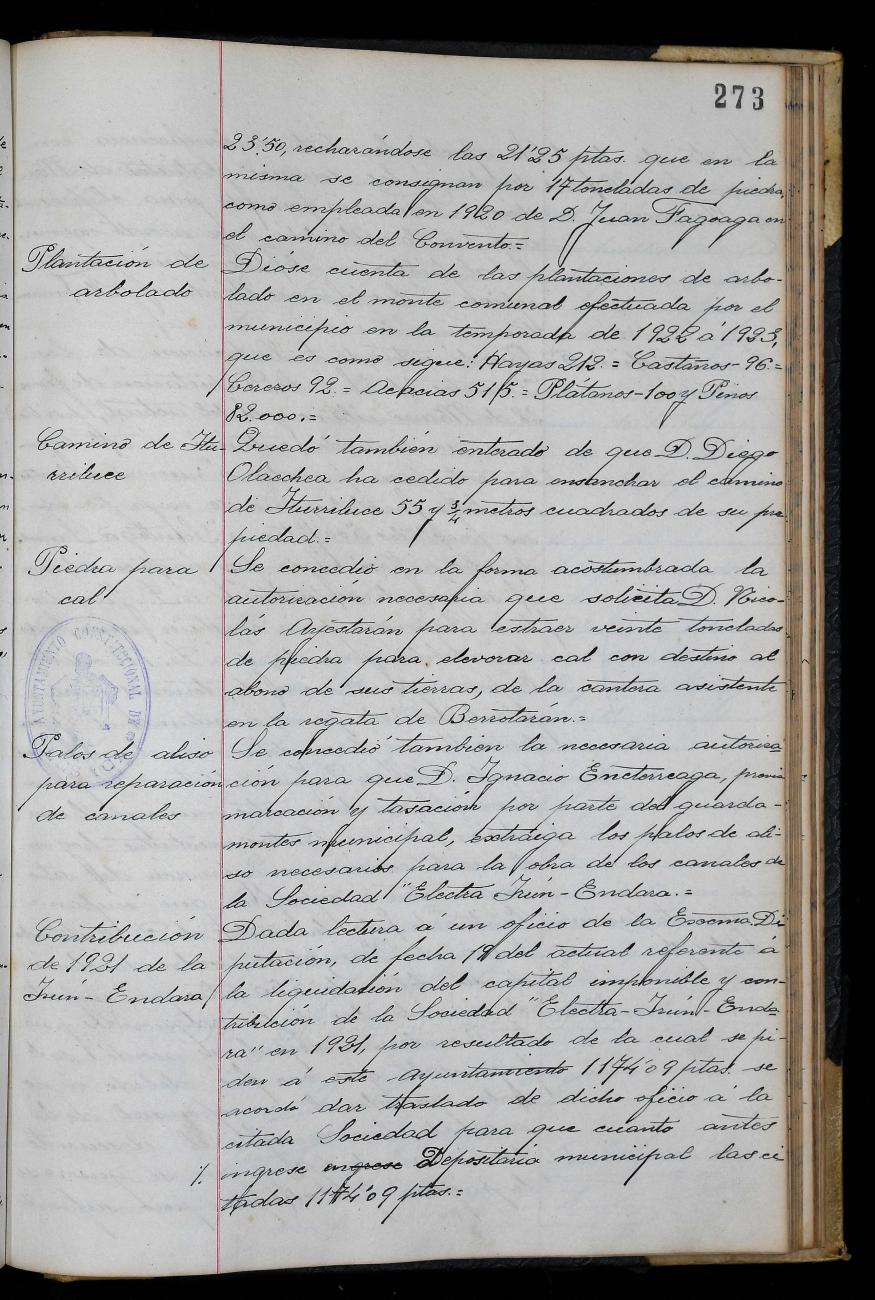 273
23'50, recharándose las 21'25 ptas. que en la
misma se consignan por 17 toneladas de piedra,
como empleada en 1920 de D. Juan Fagoaga en
el camino del Convento.=
Plantación de
arbolado
Dióse cuenta de las plantaciones de arbo-
lado en el monte comunal efectuada por el
municipio en la temporada de 1922 á 1923,
que es como sigue: Hayas 212.= Castaños-96.=
Cerezos 92.= Acacias 515.= Plátanos-100 y Pinos
82.000.=
Camino de Itu-
rriluce
Quedó también enterado de que D. Diego
Olacchea ha cedido para ensanchar el camino
de Iturriluce 55 y 3/4 metros cuadrados de su pro
piedad.=
Piedra para
cal
Se concedió en la forma acostumbrada la
autorización necesaria que solicita D. Nico-
lás Arpestarán para estraer veinte toneladas
de piedra para elevorar cal con destino al
abono de sus tierras, de la cantera asistente
en la regata de Berrotarán.=
AYUNTAMIENTO CONSTITUCIONAL DE
Palos de aliso
para reparación
de canales
Se concedió tambien la necesaria autoriza
ción para que D. Ignacio Enctorreaga, previa
marcación y tasación por parte del guarda-
montes municipal, extraiga los palos de ali-
so necesarios para la obra de los canales de
la Sociedad "Electra Irún-Endara.=
Contribución
de 1921 de la
Irún-Endara
Dada lectura á un oficio de la Excma. Di
putación, de fecha 19 del actual referente á
la liquidación del capital imponible y con-
tribución de la Sociedad "Electra-Irún-Enda-
ra" en 1921, por resultado de la cual se pi-
den á este Ayuntamiento 1174'09 ptas. se
acordó dar traslado de dicho oficio á la
citada Sociedad para que cuanto antes
ingrese ingrese Depositaria municipal las ci
tadas 1174'09 ptas.=
%